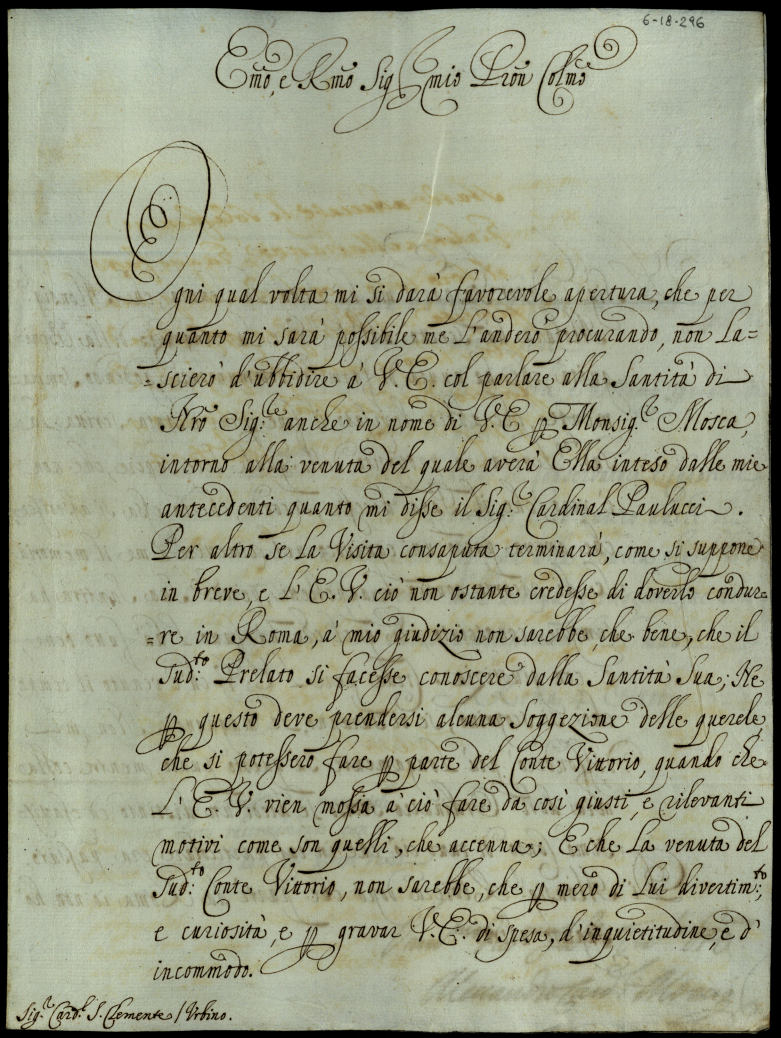 6-18-296
Emo, e Rmo Sig.r mio Pron Colmo
Ogni qual volta mi si darà favorevole apertura, che per
quanto mi sarà possibile me l'anderò procurando, non la=
=scierò d'ubbidire à V.E. col parlare alla Santità di
Nro Sig.re anche in nome di V.E p Monsig.r Mosca,
intorno alla venuta del quale averà Ella inteso dalle mie
antecedenti quanto mi disse il Sig.r Cardinal Paulucci.
Per altro se la Visita consaputa terminarà, come si suppone
in breve, e l'E.V. ciò non ostante credesse di doverlo condur=
=re in Roma, à mio giudizio non sarebbe, che bene, che il
Sud.to Prelato si facesse conoscere dalla Santità Sua; Ne
p questo deve prendersi alcuna soggezione delle querele,
che si potessero fare p parte del Conte Vittorio, quando che
l'E.V. vien mossa à ciò fare da così giusti, e rilevanti
motivi come son quelli, che accenna; E che la venuta del
Sud.to Conte Vittorio, non sarebbe, che p mero di lui divertim.to,
e curiosità, e p gravar V.E. di spesa, d'inquietitudine, e d'
incommodo.
Sig.r Card.l S. Clemente / Urbino.